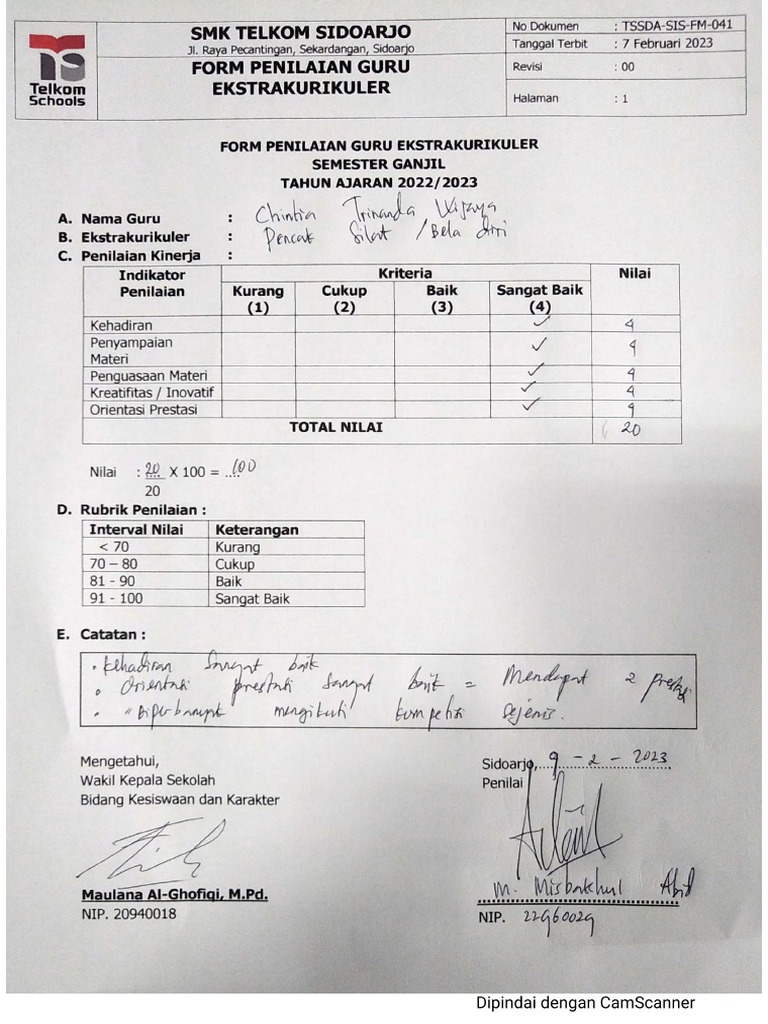 SMK TELKOM SIDOARJO
Jl. Raya Pecantingan, Sekardangan, Sidoarjo
FORM PENILAIAN GURU
EKSTRAKURIKULER
Telkom
Schools
No Dokumen : TSSDA-SIS-FM-041
Tanggal Terbit : 7 Februari 2023
Revisi : 00
Halaman : 1
FORM PENILAIAN GURU EKSTRAKURIKULER
SEMESTER GANJIL
TAHUN AJARAN 2022/2023
A. Nama Guru : Chintia Trinanda Wijaya
B. Ekstrakurikuler : Pencak Silat / Bela diri
C. Penilaian Kinerja :
Indikator Penilaian Kriteria Nilai
Kurang (1) Cukup (2) Baik (3) Sangat Baik (4)
Kehadiran ✓ 4
Penyampaian Materi ✓ 4
Penguasaan Materi ✓ 4
Kreatifitas / Inovatif ✓ 4
Orientasi Prestasi ✓ 4
TOTAL NILAI 20
Nilai : 20 X 100 = 100
20
D. Rubrik Penilaian :
Interval Nilai Keterangan
< 70 Kurang
70 – 80 Cukup
81 - 90 Baik
91 - 100 Sangat Baik
E. Catatan :
• Kehadiran Sangat baik
• Orientasi prestasi Sangat baik = Mendapat 2 prestasi
• Diperbanyak mengikuti kompetisi sejenis.
Mengetahui,
Wakil Kepala Sekolah
Bidang Kesiswaan dan Karakter
Maulana Al-Ghofiqi, M.Pd.
NIP. 20940018
Sidoarjo, 9 - 2 - 2023
Penilai
M. Misbakhul Abid
NIP. 22960029
Dipindai dengan CamScanner